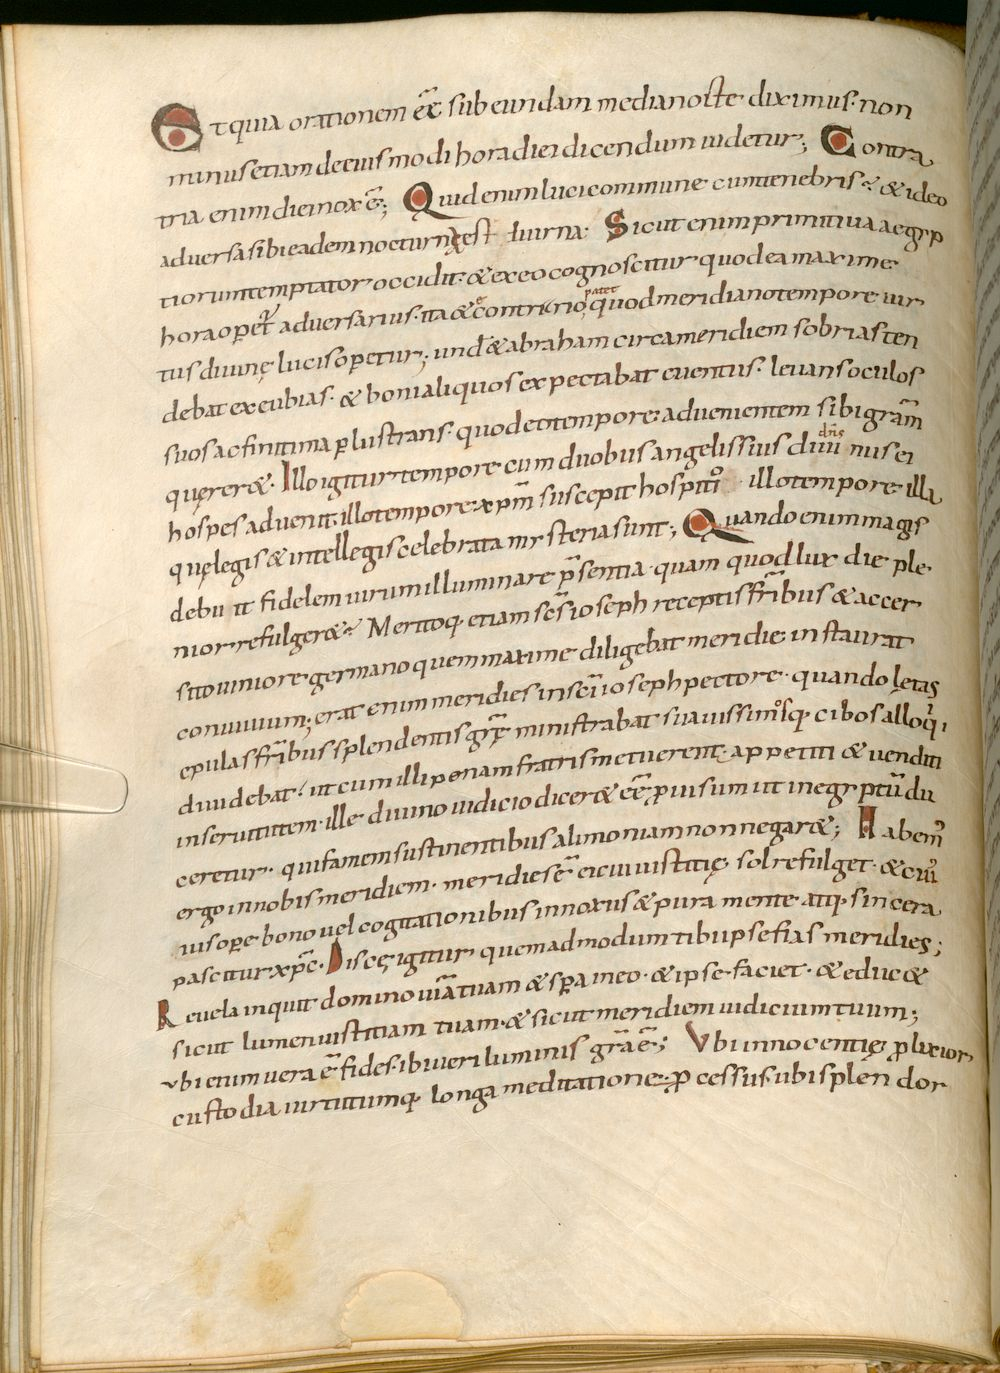 Et quia orationem ee̅ sub eundam media nocte diximus· non
minus etiam de eiusmodi hora diei dicendum uidetur; Contra
ria enim diei nox e̅; Quid enim luci commune cum tenebris? & ideo
aduersa sibi eadem nocturna est diurna· Sicut enim primitiua aegyp
tiorum temptator occidit· & ex eo cognoscitur quod ea maxime
hora operet̅ aduersarius· ita & e contrario patet quod meridiano tempore uir
tus diuinę lucis operetur; und̅ & abraham circa meridiem sobrias ten
debat excubias· & boni aliquos expectabat euentus· leuans oculos
suos ac finitima ꝑlustrans· quod eo tempore aduenientem sibi gra̅m
quęrer&· Illo igitur tempore cum duobus angelis sius diui dn̅s nus ei
hospes aduenit· illo tempore xp̅m suscepit hospitio illo tempore illa
quę legis & intellegis celebrata mysteria sunt; Quando enim magis
debuit fidelem uirum illuminare p̅sentia· quam quod lux die ple
nior refulger&? Meritoq· etiam sc̅s ioseph receptis fr̅ibus & accer
sito iuniore germano quem maxime diligebat meridie instaurat
conuiuium; erat enim meridies in sc̅i ioseph pectore· quando lętas
epulas fr̅ibus splendentis gr̅ę ministrabat suauissimosq· cibos alloq̅i
diuidebat· ut cum illi pęnam fratris metuerent· appetiti & uenditi
in seruitutem· ille diuino iudicio dicer& ee̅ ꝓuisum ut in egyptu̅ du
ceretur· qui famem sustinentibus alimoniam non negar&; Habem᾽
ergo in nobis meridiem· meridies e̅ ei cui iustitię sol refulget· & cui᾽
ius opere bono uel cogitationibus innoxiis & pura mente atq· sincera
pascitur xp̅c· Disce igitur quemadmodum tibi ipse fias meridies;
Reuela inquit domino uia̅ tuam & spera in eo· & ipse faciet· & educ&
sicut lumen iustitiam tuam· & sicut meridiem iudicium tuum;
Vbi enim uera e̅ fides· ibi ueri luminis gr̅a e̅; Vbi innocentię ꝓlixior
custodia uirtutumq· longa meditatione ꝓcessus· ubi splendor